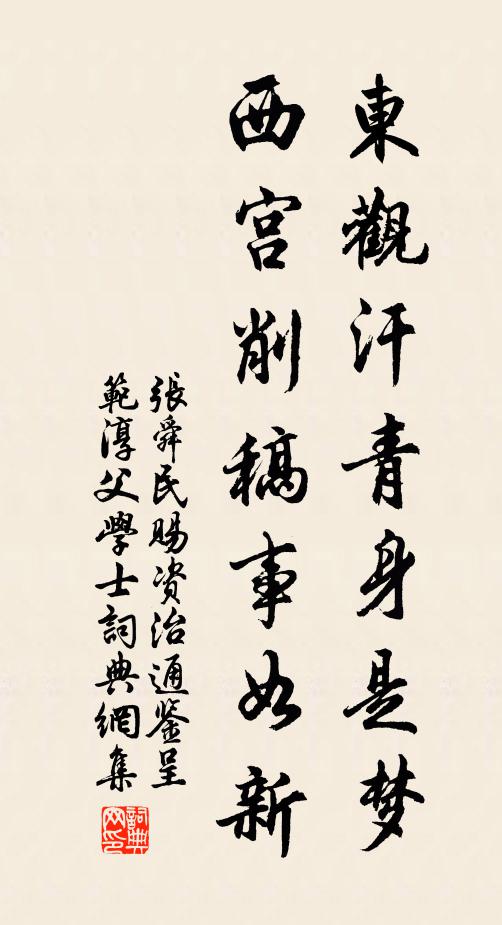 東觀汗青身是梦
西宫削稿事如新
張舜民賜資治通鉴呈
範淳父學士詞典網集
詞典
网印